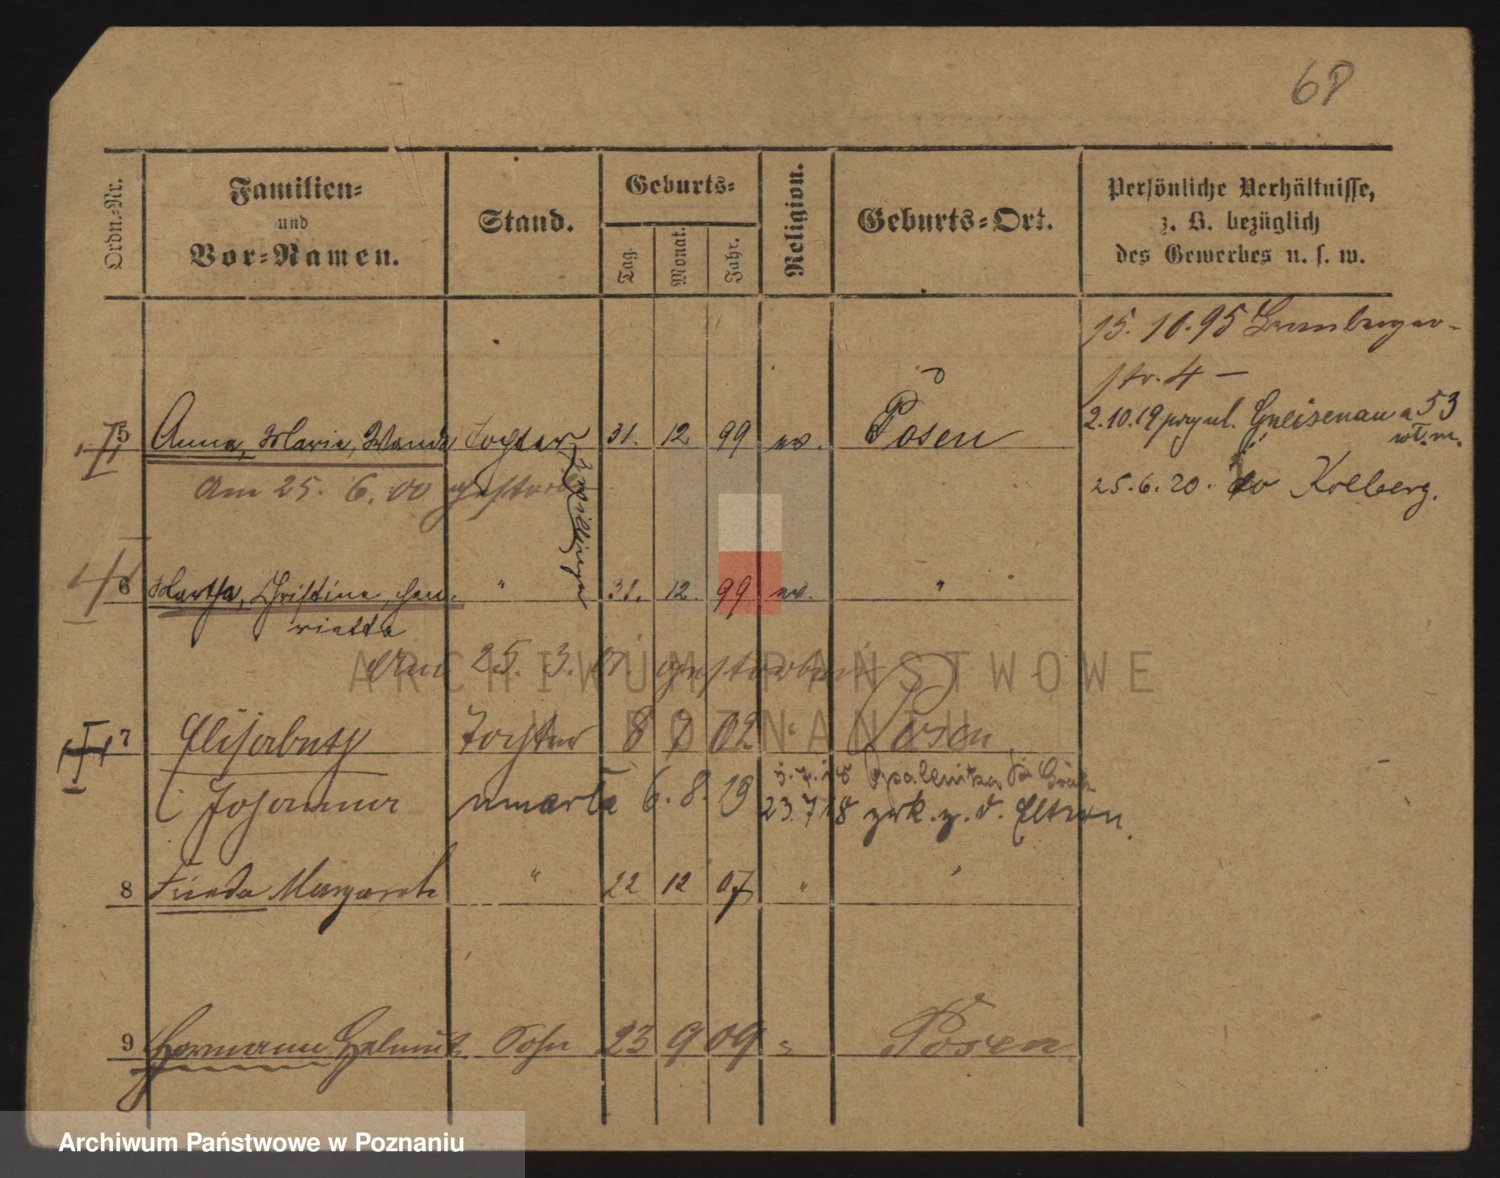 68
Ordn.-Nr.
Familien-
und
Vor-Namen.
Stand.
Geburts-
Tag.
Monat.
Jahr.
Religion.
Geburts-Ort.
Persönliche Verhältnisse,
z. B. bezüglich
des Gewerbes u. s. w.
15.10.95
str. 4 —
2.10.19 Gneisenau 53
25.6.20. Kolberg.
5 Anna, Maria, Wanda Tochter 31. 12 99 ev. Posen
Am 25. 6. 00 gestorben
Zwillinge
6 Martha, Christine, Hen-
rietta
" 31. 12. 99 ev. "
Am 25. 3. 01. gestorben
7 Elisabeth Tochter 8 7 02 " Posen
Johanna umarła 6. 8. 19
5.7.18 Opalenitza
23.7.18 zrk. z. d. Eltern.
8 Frieda Margarete " 22 12 07 " "
9 Hermann Helmut Sohn 23 9 09 " Posen
ARCHIWUM PAŃSTWOWE
W POZNANIU
Archiwum Państwowe w Poznaniu